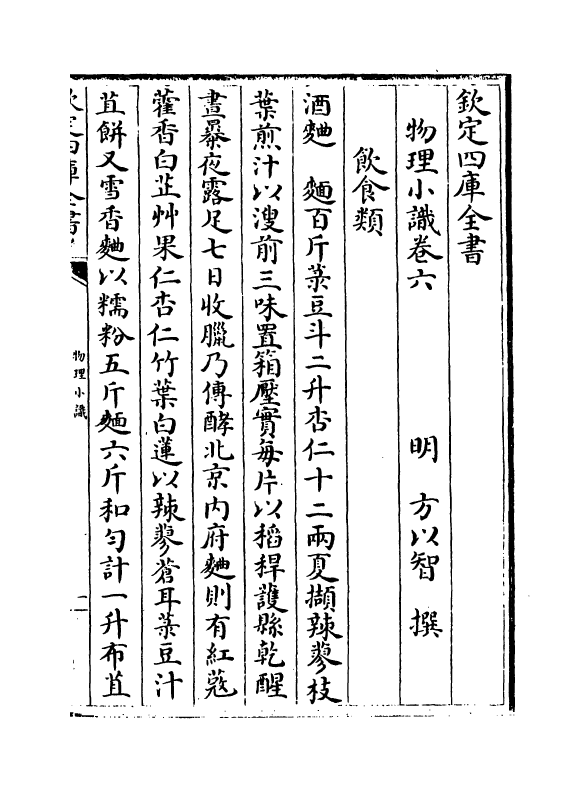 欽定四庫全書
物理小識卷六 明 方以智 撰
飲食類
酒麯 麵百斤菉豆斗二升杏仁十二兩夏擷辣蓼枝
葉煎汁以溲前三味置箱壓實每片以稻稈護懸乾醒
晝暴夜露足七日收臘乃傳酵北京内府麯則有紅蔻
藿香白芷艸果仁杏仁竹葉白蓮以辣蓼蒼耳菉豆汁
苴餅又雪香麯以糯粉五斤麵六斤和勻計一升布苴
欽定四庫全書
物理小識